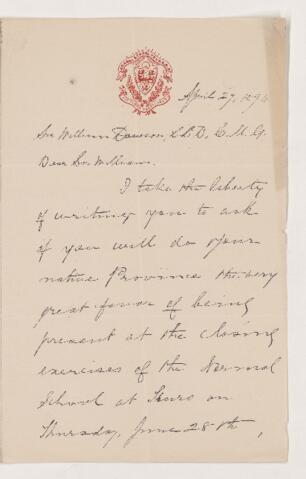 April 27, 1894
Sir William Dawson, L.L.D, C.M.G.
Dear Sir William.
I take the liberty
of writing you to ask
if you will do your
native Province the very
great favor of being
present at the closing
exercises of the Normal
School at Truro on
Thursday, June 28th,